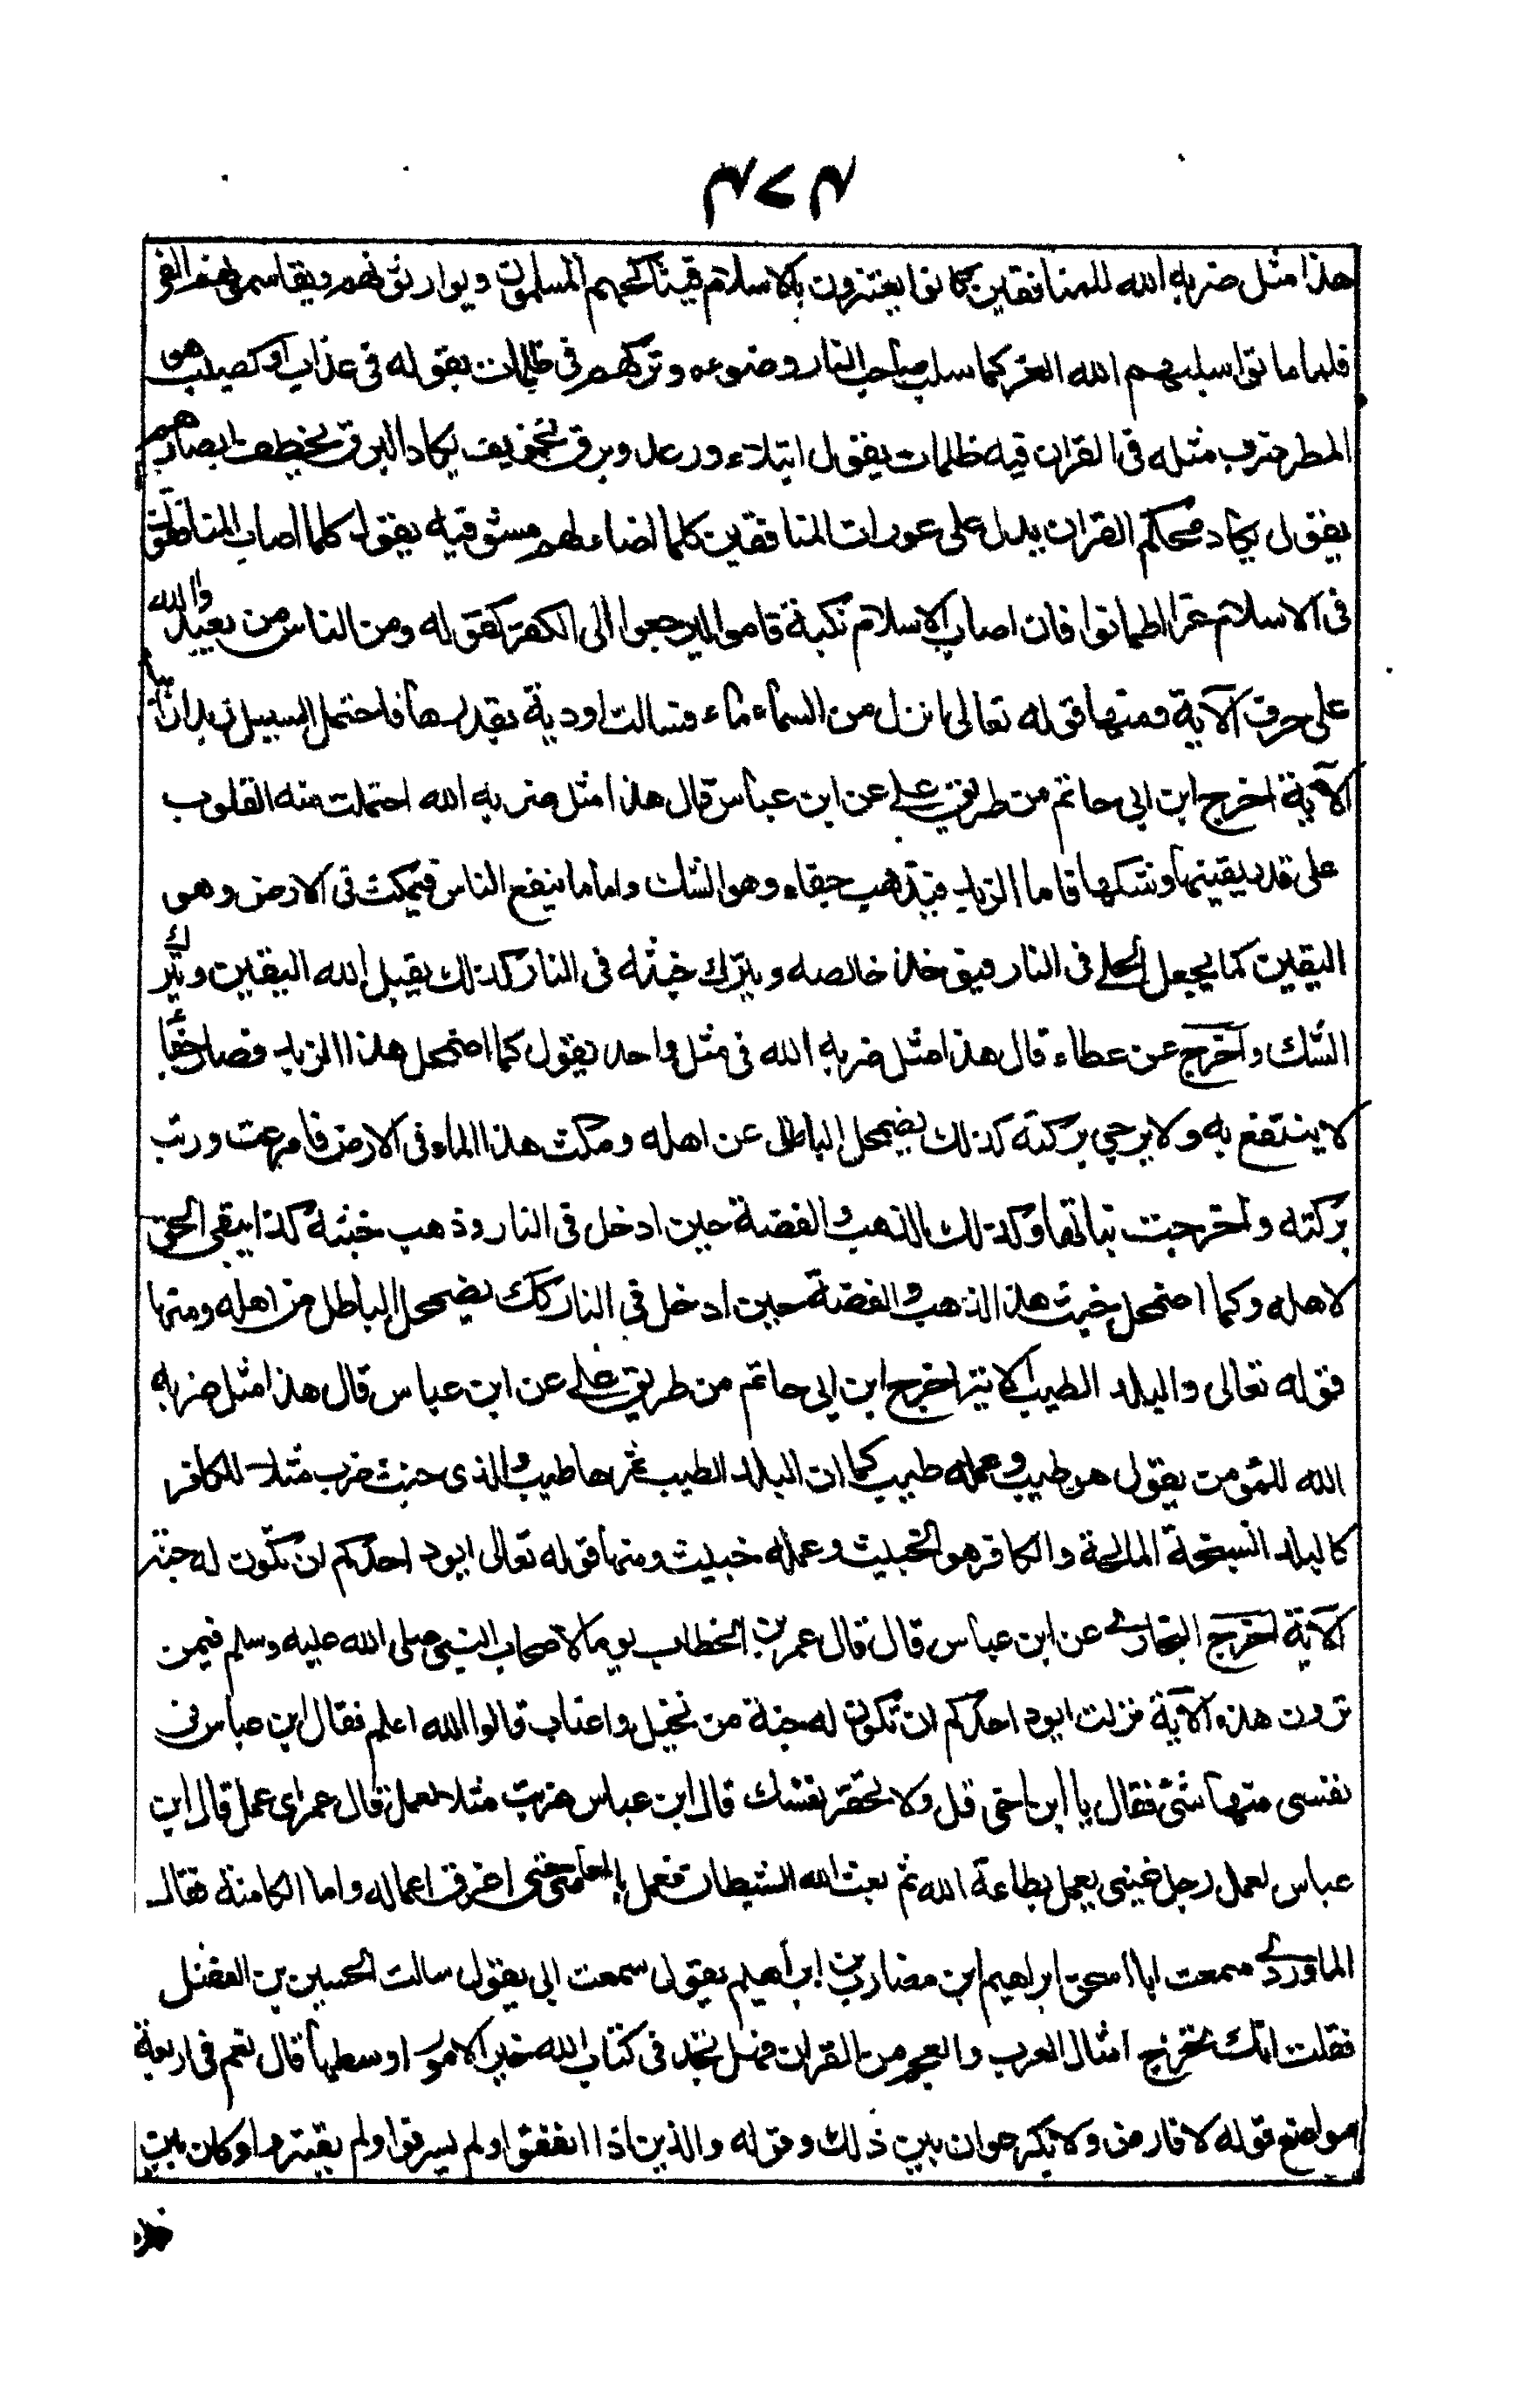 ٣٧٣
هذا مثل ضربه الله للمنافقين كانوا يعتزون بالاسلام فيناكحهم المسلمون ويوارثونهم ويقاسمونهم الفئ
فلما ماتوا سلبهم الله العز كما سلب صاحب النار ضوءه وتركهم فى ظلمات يقوله فى عذاب او كصيب هو
المطر ضرب مثله فى القران فيه ظلمات يقول ابتلاء ورعد وبرق تخويف يكاد البرق يخطف ابصارهم
يقول يكاد محكم القران يدل على عورات المنافقين كلما اضاء لهم مشوا فيه يقول كلما اصاب المنافقون
فى الاسلام عزا اطمانوا فان اصاب الاسلام نكبة قاموا ليرجعوا الى الكفر كقوله ومن الناس من يعبد الله
على حرف الآية ومنها قوله تعالى انزل من السماء ماء فسالت اودية بقدرها فاحتمل السيل زبدا رابيا
الآية اخرج ابن ابى حاتم من طريق على عن ابن عباس قال هذا مثل ضربه الله احتملت منه القلوب
على قدر يقينها وشكها فاما الزبد فيذهب جفاء وهو الشك واما ما ينفع الناس فيمكث فى الارض وهو
اليقين كما يجعل الحلى فى النار فيوخذ خالصه ويترك خبثه فى النار كذلك يقبل الله اليقين ويترك
الشك واخرج عن عطاء قال هذا مثل ضربه الله فى مثل واحد يقول كما اضمحل هذا الزبد فصار جفاء
لا ينتفع به ولا يرجى بركته كذلك يضمحل الباطل عن اهله ومكث هذا الماء فى الارض فامرعت وربت
بركته واخرجت نباتها وكذلك الذهب والفضة حين ادخل فى النار وذهب خبثه كذا يبقى الحق
لاهله وكما اضمحل خبث هذا الذهب والفضة حين ادخل فى النار كك يضمحل الباطل من اهله ومنها
قوله تعالى والبلد الطيب الاية اخرج ابن ابى حاتم من طريق على عن ابن عباس قال هذا مثل ضربه
الله للمؤمن يقول هو طيب وعمله طيب كما ان البلد الطيب ثمرها طيب والذى خبث ضرب مثلا للكافر
كالبلد السبخة المالحة والكافر هو الخبيث وعمله خبيث ومنها قوله تعالى ايود احدكم ان تكون له جنة
الآية اخرج البخارى عن ابن عباس قال قال عمر بن الخطاب يوما لاصحاب النبى صلى الله عليه وسلم فيمن
ترون هذه الآية نزلت ايود احدكم ان تكون له جنة من نخيل واعناب قالوا الله اعلم فقال ابن عباس فى
نفسى منها شئ فقال يا ابن اخى قل ولا تحقر نفسك قال ابن عباس ضربت مثلا لعمل قال عمر اى عمل قال ابن
عباس لعمل رجل غينى يعمل بطاعة الله ثم بعث الله الشيطان فعمل بالمعاصى حتى اغرق اعماله واما الكامنة فقال
الماوردى سمعت ابا اسحق ابراهيم ابن مضارب بن ابراهيم يقول سمعت ابى يقول سالت الحسين بن الفضل
فقلت انك تخرج امثال العرب والعجم من القران فهل تجد فى كتاب الله خير الامور اوسطها قال نعم فى اربعة
مواضع قوله لا فارض ولا بكر عوان بين ذلك وقوله والذين اذا انفقوا ولم يسرفوا ولم يقتروا وكان بين